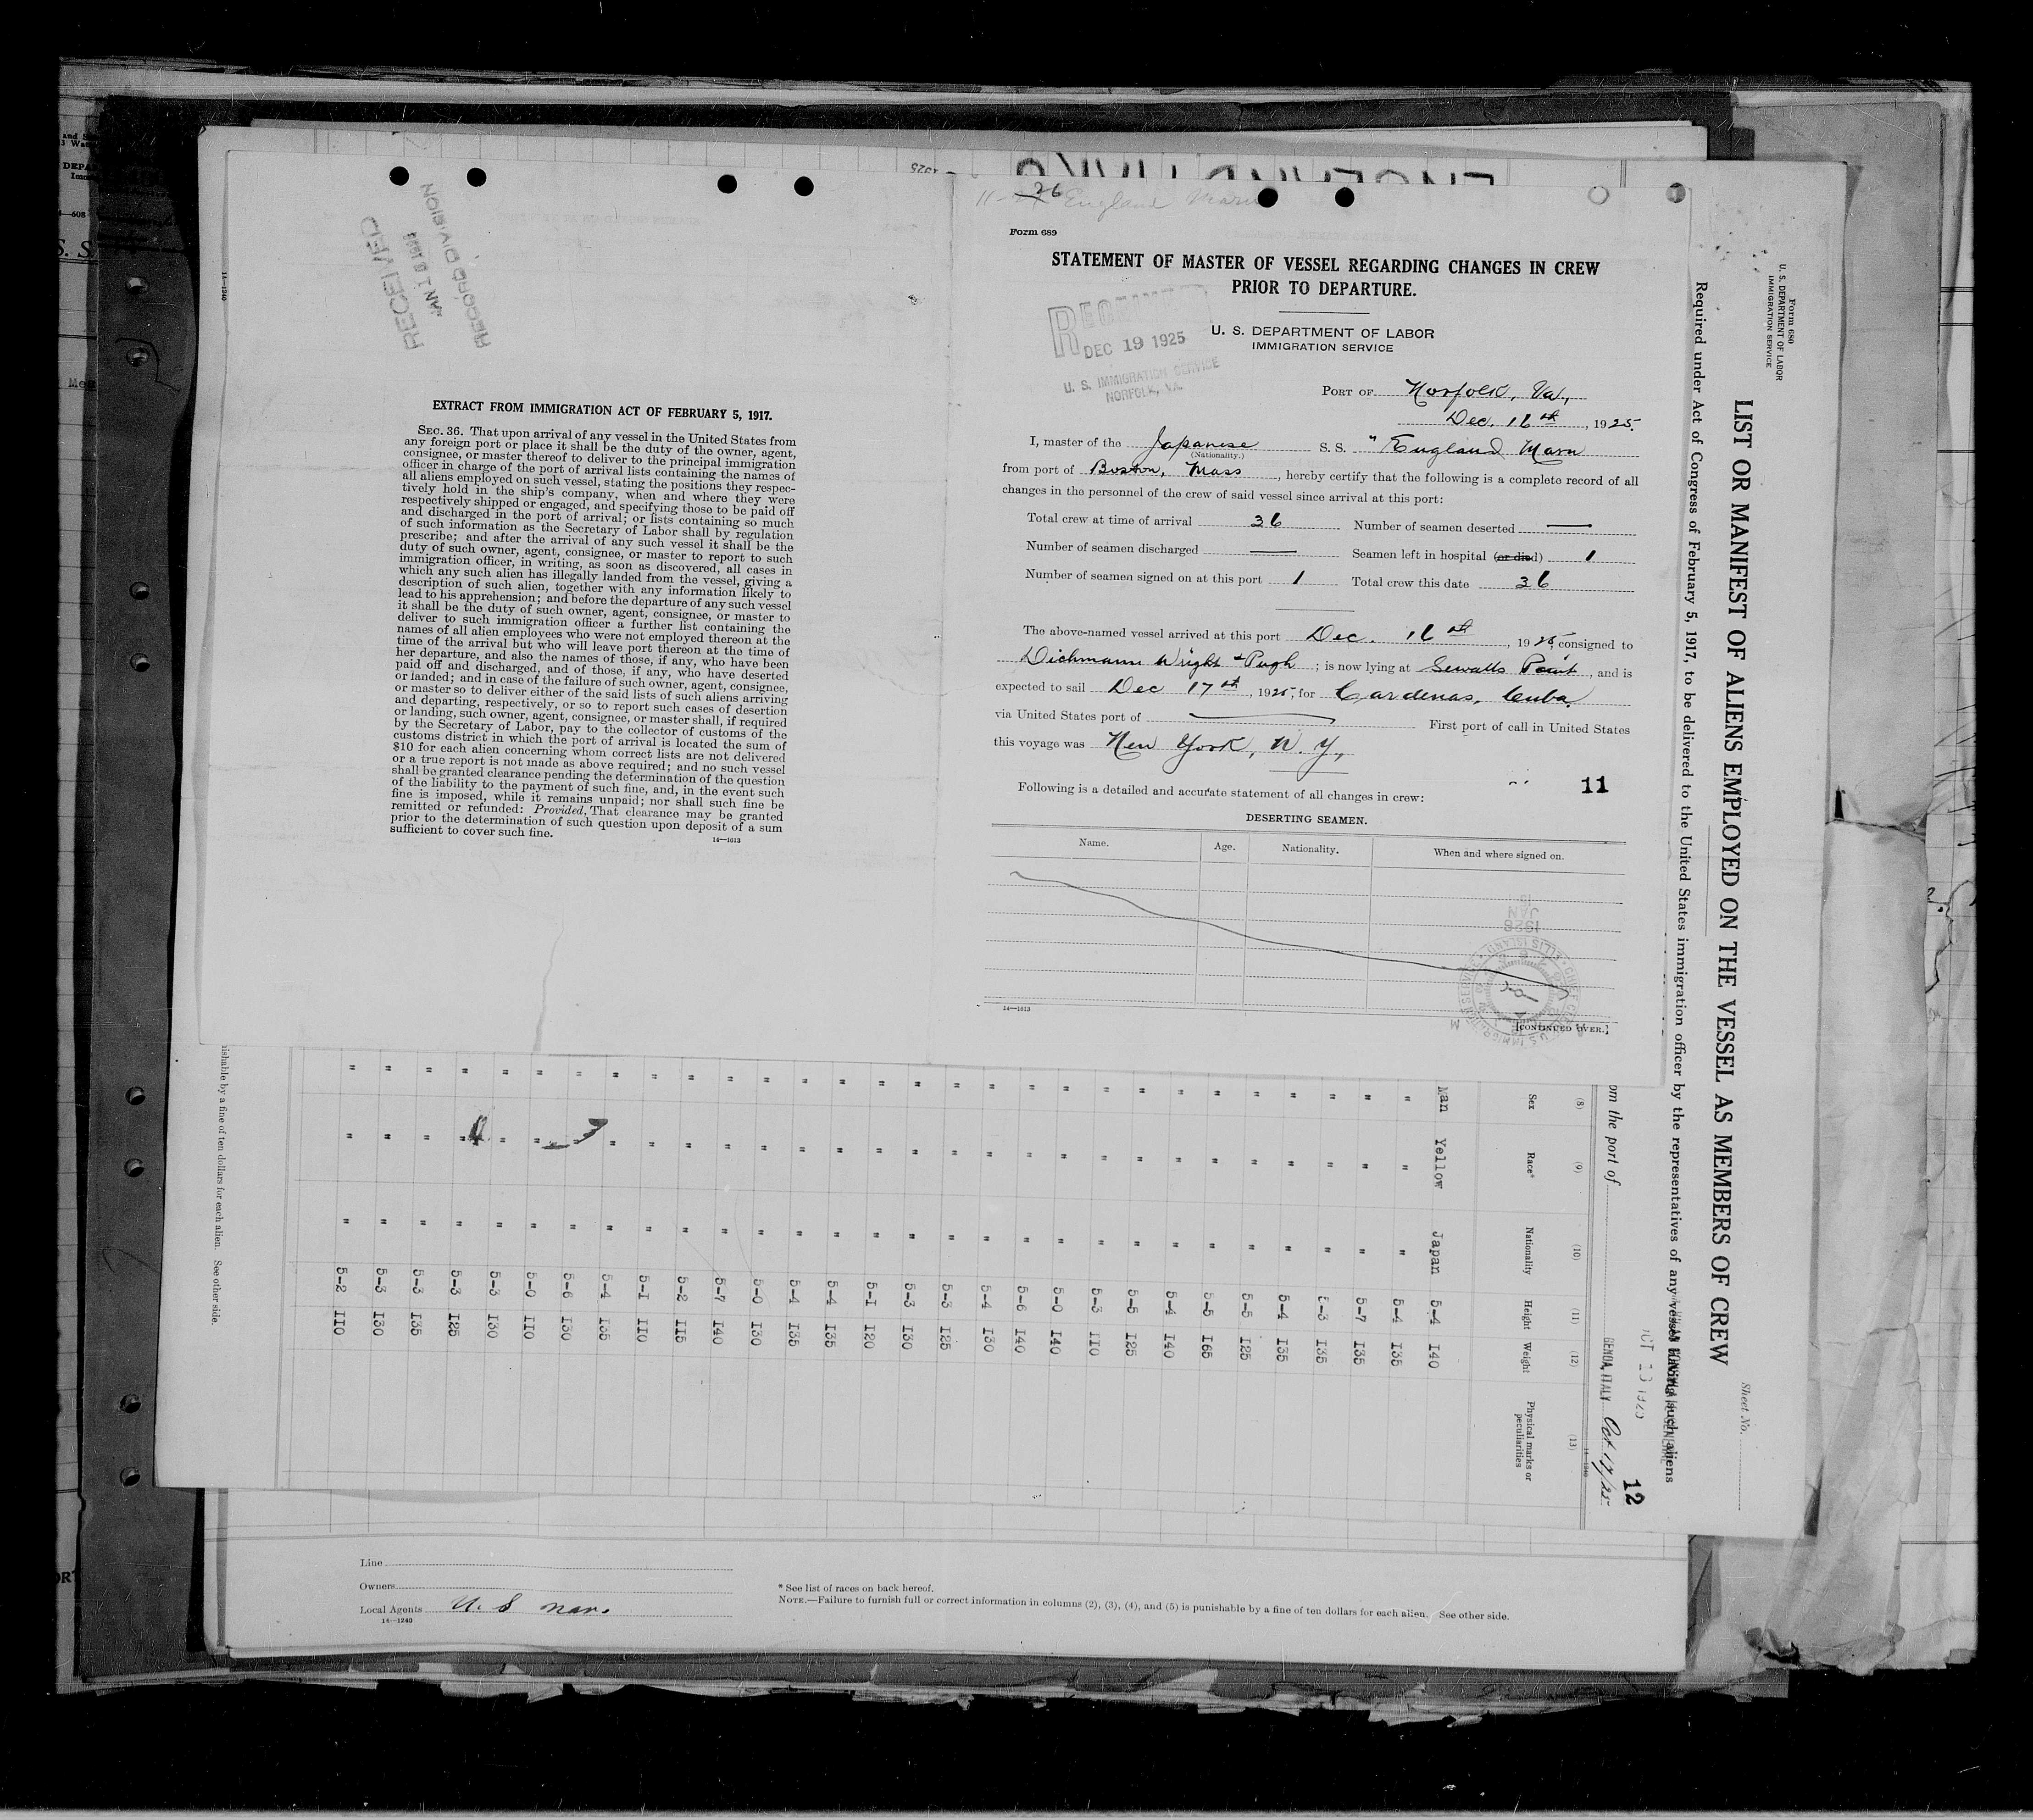 EXTRACT FROM IMMIGRATION ACT OF FEBRUARY 5, 1917.
SEC. 36. That upon arrival of any vessel in the United States from
any foreign port or place it shall be the duty of the owner, agent,
consignee, or master thereof to deliver to the principal immigration
officer in charge of the port of arrival lists containing the names of
all aliens employed on such vessel, stating the positions they respec-
tively hold in the ship's company, when and where they were
respectively shipped or engaged, and specifying those to be paid off
and discharged in the port of arrival; or lists containing so much
of such information as the Secretary of Labor shall by regulation
prescribe; and after the arrival of any such vessel it shall be the
duty of such owner, agent, consignee, or master to report to such
immigration officer, in writing, as soon as discovered, all cases in
which any such alien has illegally landed from the vessel, giving a
description of such alien, together with any information likely to
lead to his apprehension; and before the departure of any such vessel
it shall be the duty of such owner, agent, consignee, or master to
deliver to such immigration officer a further list containing the
names of all alien employees who were not employed thereon at the
time of the arrival but who will leave port thereon at the time of
her departure, and also the names of those, if any, who have been
paid off and discharged, and of those, if any, who have deserted
or landed; and in case of the failure of such owner, agent, consignee,
or master so to deliver either of the said lists of such aliens arriving
and departing, respectively, or so to report such cases of desertion
or landing, such owner, agent, consignee, or master shall, if required
by the Secretary of Labor, pay to the collector of customs of the
customs district in which the port of arrival is located the sum of
$10 for each alien concerning whom correct lists are not delivered
or a true report is not made as above required; and no such vessel
shall be granted clearance pending the determination of the question
of the liability to the payment of such fine, and, in the event such
fine is imposed, while it remains unpaid; nor shall such fine be
remitted or refunded: Provided, That clearance may be granted
prior to the determination of such question upon deposit of a sum
sufficient to cover such fine.
14—1613
RECEIVED
RECORD DIVISION
26 England Maru
Form 689
STATEMENT OF MASTER OF VESSEL REGARDING CHANGES IN CREW
PRIOR TO DEPARTURE.
U. S. DEPARTMENT OF LABOR
IMMIGRATION SERVICE
RECEIVED
DEC 19 1925
U. S. IMMIGRATION SERVICE
NORFOLK, VA.
PORT OF Norfolk, Va.,
Dec. 16th, 1925.
I, master of the Japanese S. S. "England Maru
(Nationality.)
from port of Boston, Mass, hereby certify that the following is a complete record of all
changes in the personnel of the crew of said vessel since arrival at this port:
Total crew at time of arrival 36 Number of seamen deserted —
Number of seamen discharged — Seamen left in hospital (or died) 1
Number of seamen signed on at this port 1 Total crew this date 36
The above-named vessel arrived at this port Dec. 16th, 1925, consigned to
Dichmann Wright + Pugh; is now lying at Sewalls Point, and is
expected to sail Dec 17th, 1925 for Cardenas, Cuba.
via United States port of — First port of call in United States
this voyage was New York, N. Y.,
Following is a detailed and accurate statement of all changes in crew:
11
DESERTING SEAMEN.
Name. Age. Nationality. When and where signed on.
14—1613
[CONTINUED OVER.]
Form 680
U. S. DEPARTMENT OF LABOR
IMMIGRATION SERVICE
LIST OR MANIFEST OF ALIENS EMPLOYED ON THE VESSEL AS MEMBERS OF CREW
Sheet No.
Required under Act of Congress of February 5, 1917, to be delivered to the United States immigration officer by the representatives of any vessel having such aliens
om the port of GENOA, ITALY Oct 17/25
12
14—1240
(8) (9) (10) (11) (12) (13)
Sex Race* Nationality Height Weight Physical marks or peculiarities
Man Yellow Japan 5-4 140
" " " 5-4 135
" " " 5-7 135
" " " 5-3 135
" " " 5-4 135
" " " 5-5 125
" " " 5-5 165
" " " 5-4 140
" " " 5-5 125
" " " 5-3 110
" " " 5-0 140
" " " 5-6 140
" " " 5-4 130
" " " 5-3 125
" " " 5-3 130
" " " 5-1 120
" " " 5-4 135
" " " 5-4 135
" " " 5-0 130
" " " 5-7 140
" " " 5-2 115
" " " 5-1 110
" " " 5-4 135
" " " 5-6 130
" " " 5-0 110
" " " 5-3 130
" " " 5-3 125
" " " 5-3 135
" " " 5-3 130
" " " 5-2 110
ishable by a fine of ten dollars for each alien. See other side.
14—1240
Line
Owners
Local Agents U. S nav.
14—1240
* See list of races on back hereof.
NOTE.—Failure to furnish full or correct information in columns (2), (3), (4), and (5) is punishable by a fine of ten dollars for each alien. See other side.